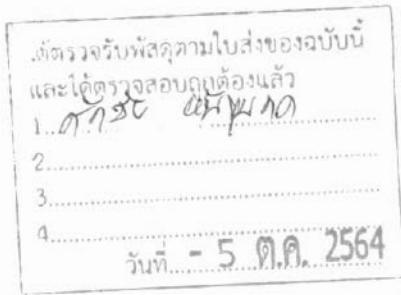 .ต้ตรวจรับพัสดุตามใบส่งของฉบับนี้
และได้ตรวจสอบถูกต้องแล้ว
1
2
3
4
วันที่ - 5 ต.ค. 2564